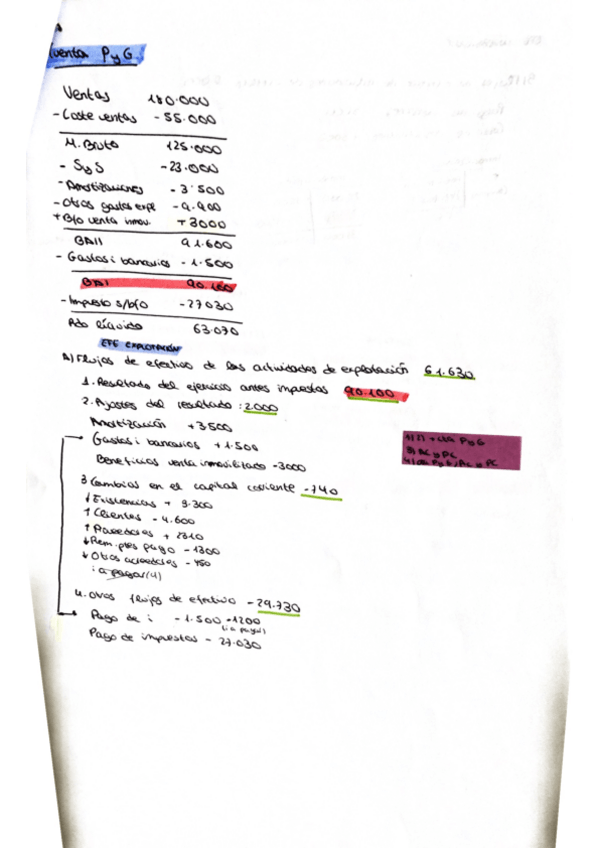 Cuenta PyG.
Ventas 180.000
- Coste ventas - 55.000
M. Bruto 125.000
- SyS -23.000
- Amortizaciones - 3'500
- Otros gastos expl - 9.900
+ Bfo venta inmov. + 3000
BAII 91.600
- Gastos i bancarios - 1.500
BAI 90.100
- Impuesto s/bfo -27030
Rdo líquido 63.070
EFE EXPLOTACIÓN
A) Flujos de efectivo de las actividades de explotación 61.630
1. Resultado del ejercicio antes impuestos 90.100
2. Ajustes del resultado : 2.000
Amortización +3500
Gastos i bancarios + 1.500
Beneficios venta inmovilizado -3000
1) 2) → cta PyG
3) AC y PC
4) cta PyG, AC y PC
3 Cambios en el capital corriente -740
↓ Existencias + 3.300
↑ Clientes - 4.600
↑ Proveedores + 2310
↓ Rem. ptes pago - 1300
↓ Otros acreedores - 450
i a pagar (4)
4. Otros flujos de efectivo - 29.730
Pago de i - 1.500 -1200
(i a pagar)
Pago de impuestos - 27.030